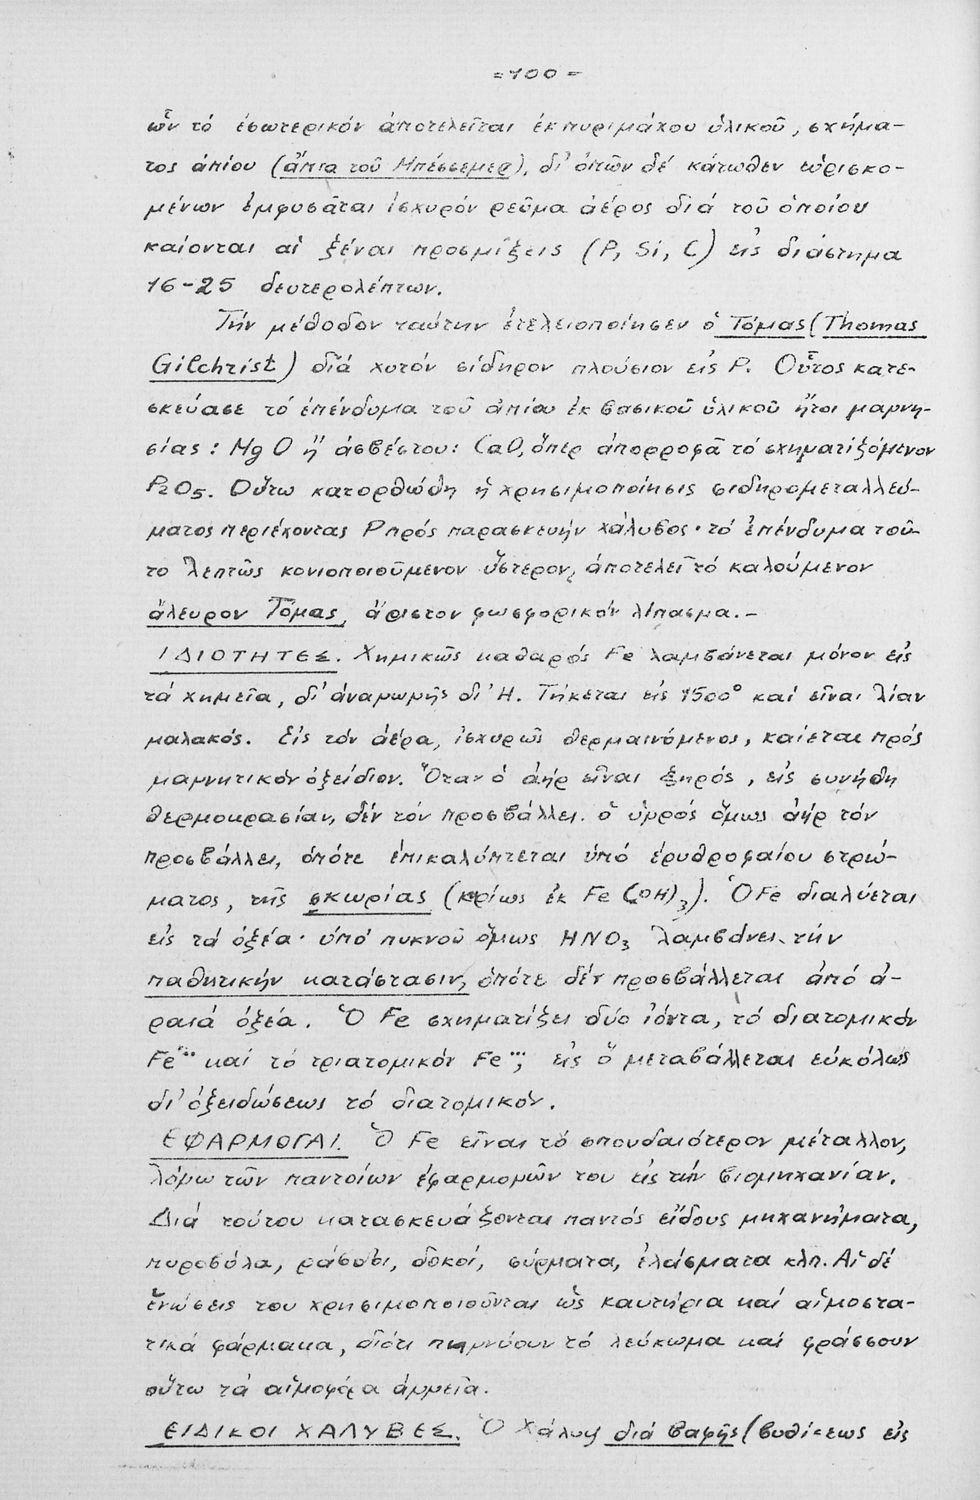 = 100 =
ὧν τό ἐσωτερικόν ἀποτελεῖται ἐκ πυριμάχου ὑλικοῦ, σχήμα-
τος ἀπίου (ἄπια τοῦ Μπέσσεμερ), δι' ὀπῶν δέ κάτωθεν εὑρισκο-
μένων ἐμφυσᾶται ἰσχυρόν ρεῦμα ἀέρος διά τοῦ ὁποίου
καίονται αἱ ξέναι προσμίξεις (P, Si, C) εἰς διάστημα
16-25 δευτερολέπτων.
Τήν μέθοδον ταύτην ἐτελειοποίησεν ὁ Τόμας (Thomas
Gilchrist) διά χυτόν σίδηρον πλούσιον εἰς P. Οὗτος κατε-
σκεύασε τό ἐπένδυμα τοῦ ἀπίου ἐκ βασικοῦ ὑλικοῦ ἤτοι μαγνη-
σίας: MgO ἤ ἀσβέστου: CaO, ὅπερ ἀπορροφᾶ τό σχηματιζόμενον
P2O5. Οὕτω κατορθώθη ἡ χρησιμοποίησις σιδηρομεταλλεύ-
ματος περιέχοντας P πρός παρασκευήν χάλυβος· τό ἐπένδυμα τοῦ-
το λεπτῶς κονιοποιούμενον ὕστερον, ἀποτελεῖ τό καλούμενον
ἄλευρον Τόμας, ἄριστον φωσφορικόν λίπασμα.-
ΙΔΙΟΤΗΤΕΣ. Χημικῶς καθαρός Fe λαμβάνεται μόνον εἰς
τά χημεῖα, δι' ἀναγωγῆς δι' H. Τήκεται εἰς 1500° καί εἶναι λίαν
μαλακός. Εἰς τόν ἀέρα, ἰσχυρῶς θερμαινόμενος, καίεται πρός
μαγνητικόν ὀξείδιον. Ὅταν ὁ ἀήρ εἶναι ξηρός, εἰς συνήθη
θερμοκρασίαν, δέν τόν προσβάλλει. ὁ ὑγρός ὅμως ἀήρ τόν
προσβάλλει, ὁπότε ἐπικαλύπτεται ὑπό ἐρυθροφαίου στρώ-
ματος, τῆς σκωρίας (κρίως ἐκ Fe(OH)3). Ὁ Fe διαλύεται
εἰς τά ὀξέα· ὑπό πυκνοῦ ὅμως HNO3 λαμβάνει τήν
παθητικήν κατάστασιν, ὁπότε δέν προσβάλλεται ἀπό ἀ-
ραιά ὀξέα. Ὁ Fe σχηματίζει δύο ἰόντα, τό διατομικόν
Fe¨ καί τό τριατομικόν Fe···, εἰς ὅ μεταβάλλεται εὐκόλως
δι' ὀξειδώσεως τό διατομικόν.
ΕΦΑΡΜΟΓΑΙ. Ὁ Fe εἶναι τό σπουδαιότερον μέταλλον,
λόγω τῶν παντοίων ἐφαρμογῶν του εἰς τήν βιομηχανίαν.
Διά τούτου κατασκευάζονται παντός εἴδους μηχανήματα,
πυροβόλα, ράβδοι, δοκοί, σύρματα, ἐλάσματα κλπ. Αἱ δέ
ἑνώσεις του χρησιμοποιοῦνται ὡς καυτήρια καί αἱμοστα-
τικά φάρμακα, διότι πηγνύουν τό λεύκωμα καί φράσσουν
οὕτω τά αἱμοφόρα ἀγγεῖα.
ΕΙΔΙΚΟΙ ΧΑΛΥΒΕΣ. Ὁ Χάλυψ διά βαφῆς (βυθίσεως εἰς